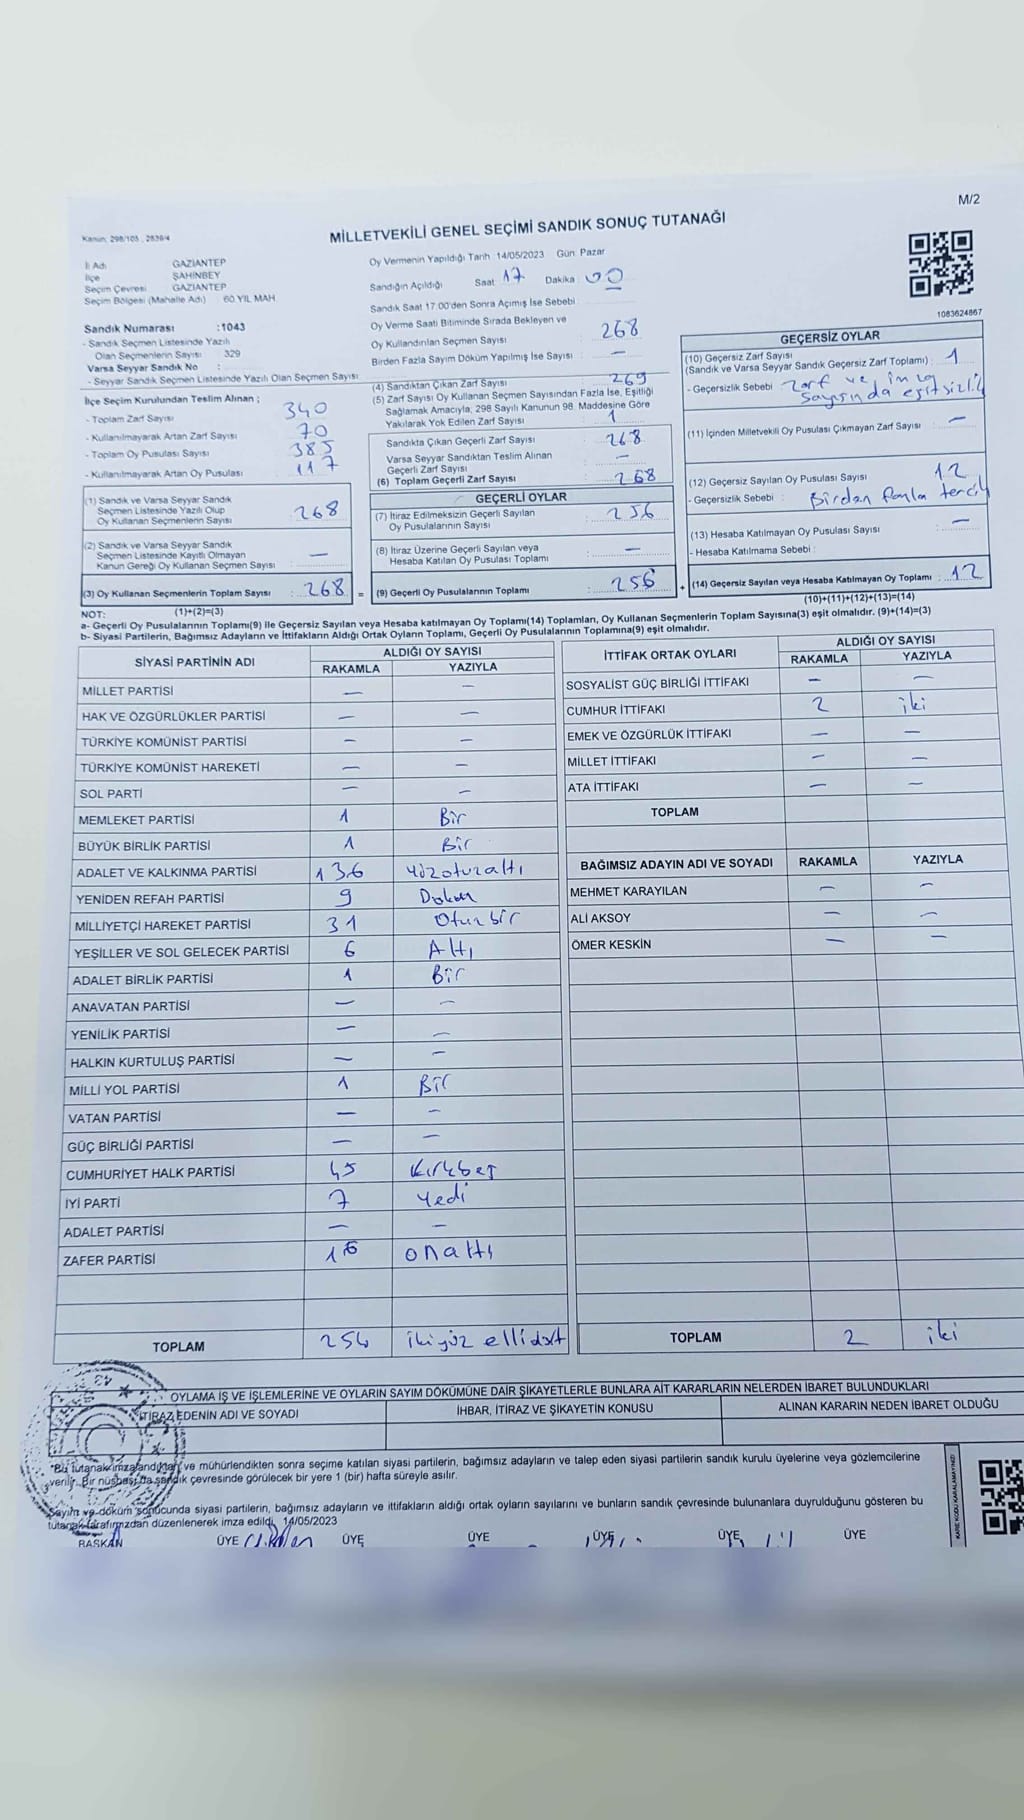 M/2
Kanun: 298/105 , 2839/4
MİLLETVEKİLİ GENEL SEÇİMİ SANDIK SONUÇ TUTANAĞI
İl Adı GAZİANTEP
İlçe ŞAHİNBEY
Seçim Çevresi GAZİANTEP
Seçim Bölgesi (Mahalle Adı) 60.YIL MAH.
Sandık Numarası :1043
- Sandık Seçmen Listesinde Yazılı
Olan Seçmenlerin Sayısı: 329
Varsa Seyyar Sandık No :
- Seyyar Sandık Seçmen Listesinde Yazılı Olan Seçmen Sayısı:
İlçe Seçim Kurulundan Teslim Alınan ;
- Toplam Zarf Sayısı 340
- Kullanılmayarak Artan Zarf Sayısı 70
- Toplam Oy Pusulası Sayısı 385
- Kullanılmayarak Artan Oy Pusulası 117
(1) Sandık ve Varsa Seyyar Sandık
Seçmen Listesinde Yazılı Olup
Oy Kullanan Seçmenlerin Sayısı 268
(2) Sandık ve Varsa Seyyar Sandık
Seçmen Listesinde Kayıtlı Olmayan
Kanun Gereği Oy Kullanan Seçmen Sayısı —
(3) Oy Kullanan Seçmenlerin Toplam Sayısı : 268 =
Oy Vermenin Yapıldığı Tarih: 14/05/2023 Gün: Pazar
Sandığın Açıldığı Saat: 17 Dakika: 00
Sandık Saat 17:00'den Sonra Açımış İse Sebebi:
Oy Verme Saati Bitiminde Sırada Bekleyen ve
Oy Kullandırılan Seçmen Sayısı : 268
Birden Fazla Sayım Döküm Yapılmış İse Sayısı : —
(4) Sandıktan Çıkan Zarf Sayısı : 269
(5) Zarf Sayısı Oy Kullanan Seçmen Sayısından Fazla İse, Eşitliği
Sağlamak Amacıyla; 298 Sayılı Kanunun 98. Maddesine Göre
Yakılarak Yok Edilen Zarf Sayısı : 1
Sandıkta Çıkan Geçerli Zarf Sayısı : 268
Varsa Seyyar Sandıktan Teslim Alınan
Geçerli Zarf Sayısı : —
(6) Toplam Geçerli Zarf Sayısı : 268
GEÇERLİ OYLAR
(7) İtiraz Edilmeksizin Geçerli Sayılan
Oy Pusulalarının Sayısı : 256
(8) İtiraz Üzerine Geçerli Sayılan veya
Hesaba Katılan Oy Pusulası Toplamı : —
(9) Geçerli Oy Pusulalarının Toplamı : 256 +
1083624867
GEÇERSİZ OYLAR
(10) Geçersiz Zarf Sayısı
(Sandık ve Varsa Seyyar Sandık Geçersiz Zarf Toplamı) : 1
- Geçersizlik Sebebi : Zarf ve imza
sayısında eşitsizlik
(11) İçinden Milletvekili Oy Pusulası Çıkmayan Zarf Sayısı : —
(12) Geçersiz Sayılan Oy Pusulası Sayısı : 12
- Geçersizlik Sebebi : Birden fazla tercih
(13) Hesaba Katılmayan Oy Pusulası Sayısı : —
- Hesaba Katılmama Sebebi :
(14) Geçersiz Sayılan veya Hesaba Katılmayan Oy Toplamı : 12
NOT: (1)+(2)=(3)
(10)+(11)+(12)+(13)=(14)
a- Geçerli Oy Pusulalarının Toplamı(9) ile Geçersiz Sayılan veya Hesaba katılmayan Oy Toplamı(14) Toplamları, Oy Kullanan Seçmenlerin Toplam Sayısına(3) eşit olmalıdır. (9)+(14)=(3)
b- Siyasi Partilerin, Bağımsız Adayların ve İttifakların Aldığı Ortak Oyların Toplamı, Geçerli Oy Pusulalarının Toplamına(9) eşit olmalıdır.
SİYASİ PARTİNİN ADI ALDIĞI OY SAYISI
RAKAMLA YAZIYLA
MİLLET PARTİSİ — —
HAK VE ÖZGÜRLÜKLER PARTİSİ — —
TÜRKİYE KOMÜNİST PARTİSİ — —
TÜRKİYE KOMÜNİST HAREKETİ — —
SOL PARTİ — —
MEMLEKET PARTİSİ 1 Bir
BÜYÜK BİRLİK PARTİSİ 1 Bir
ADALET VE KALKINMA PARTİSİ 136 Yüzoturaltı
YENİDEN REFAH PARTİSİ 9 Dokuz
MİLLİYETÇİ HAREKET PARTİSİ 31 Oturbir
YEŞİLLER VE SOL GELECEK PARTİSİ 6 Altı
ADALET BİRLİK PARTİSİ 1 Bir
ANAVATAN PARTİSİ — —
YENİLİK PARTİSİ — —
HALKIN KURTULUŞ PARTİSİ — —
MİLLİ YOL PARTİSİ 1 Bir
VATAN PARTİSİ — —
GÜÇ BİRLİĞİ PARTİSİ — —
CUMHURİYET HALK PARTİSİ 45 Kırkbeş
İYİ PARTİ 7 Yedi
ADALET PARTİSİ — —
ZAFER PARTİSİ 16 onaltı
TOPLAM 254 ikiyüz ellidört
İTTİFAK ORTAK OYLARI ALDIĞI OY SAYISI
RAKAMLA YAZIYLA
SOSYALİST GÜÇ BİRLİĞİ İTTİFAKI — —
CUMHUR İTTİFAKI 2 iki
EMEK VE ÖZGÜRLÜK İTTİFAKI — —
MİLLET İTTİFAKI — —
ATA İTTİFAKI — —
TOPLAM
BAĞIMSIZ ADAYIN ADI VE SOYADI RAKAMLA YAZIYLA
MEHMET KARAYILAN — —
ALİ AKSOY — —
ÖMER KESKİN — —
TOPLAM 2 iki
OYLAMA İŞ VE İŞLEMLERİNE VE OYLARIN SAYIM DÖKÜMÜNE DAİR ŞİKAYETLERLE BUNLARA AİT KARARLARIN NELERDEN İBARET BULUNDUKLARI
İTİRAZ EDENİN ADI VE SOYADI İHBAR, İTİRAZ VE ŞİKAYETİN KONUSU ALINAN KARARIN NEDEN İBARET OLDUĞU
*Bu tutanak imzalandıktan ve mühürlendikten sonra seçime katılan siyasi partilerin, bağımsız adayların ve talep eden siyasi partilerin sandık kurulu üyelerine veya gözlemcilerine
verilir. Bir nüshası da sandık çevresinde görülecek bir yere 1 (bir) hafta süreyle asılır.
Sayım ve döküm sonucunda siyasi partilerin, bağımsız adayların ve ittifakların aldığı ortak oyların sayılarını ve bunların sandık çevresinde bulunanlara duyrulduğunu gösteren bu
tutanak tarafımızdan düzenlenerek imza edildi. 14/05/2023
BAŞKAN ÜYE ÜYE ÜYE ÜYE ÜYE ÜYE
KARE KODU KARALAMAYINIZ!